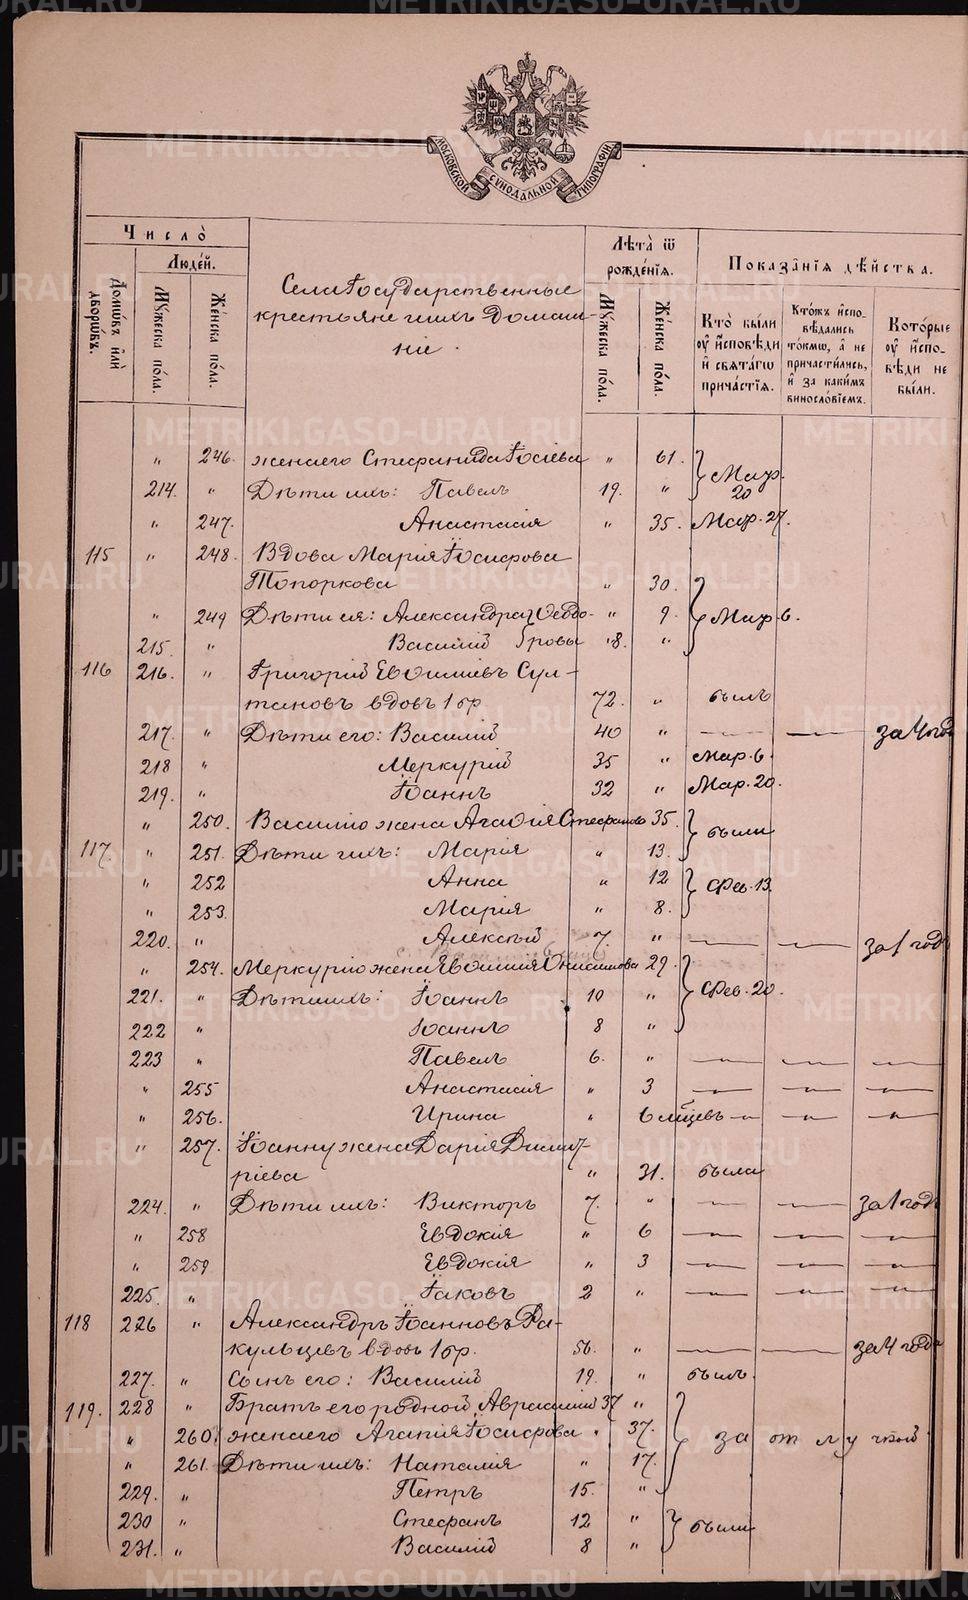 МОСКОВСКОЙ СѴНОДАЛЬНОЙ ТИПОГРАФІИ
Число̀
Людей.
Домѡвъ и҆лѝ дворѡвъ.
Мꙋжеска пола.
Женска пола.
Села Государственные
крестьяне и ихъ домаш-
ніе.
Лѣта ѿ рожденїѧ.
Мꙋжеска пола.
Женска пола.
Показанїѧ дѣйства.
Кто̀ были оу҆ и҆сповѣди и҆ свѧтагѡ причастїѧ.
Ктѡжъ и҆спо- вѣдались токмѡ, а҆ не причастились, и҆ за какимъ винословїемъ.
Которые оу҆ и҆спо- вѣди не были.
" 246. жена его Стефанида Іосіева " 61. } Мар. 20
214. " Дѣти ихъ: Павелъ 19. "
" 247. Анастасія " 35. Мар. 27.
115 " 248. Вдова Марія Іосифова
Топоркова " 30. } Мар 6.
" 249 Дѣти ея: Александра Ѳедо- " 9.
215. " Василій ровы 8. "
116 216. " Григорій Евѳиміевъ Сул-
тановъ вдовъ 1 бр. 72. " былъ
217. " Дѣти его: Василій 40 " — — за 4 год
218 " Меркурій 35 " Мар. 6.
219. " Іоаннъ 32 " Мар. 20.
" 250. Василію жена Агаѳія Стефанов 35. } были
117. " 251. Дѣти ихъ: Марія " 13.
" 252 Анна " 12 } Фев. 13.
" 253. Марія " 8.
220. " Алексѣй 7. " — — за 1 годъ
" 254. Меркурію жена Евѳимія Онисимова 29. } Фев. 20.
221. " Дѣти ихъ: Іоаннъ 10 "
222 " Іоаннъ 8 "
223 " Павелъ 6. " — — —
" 255 Анастасія " 3 — — —
" 256. Ирина " 6 мѣсцевъ — — —
" 257. Іоанну жена Дарія Димит-
ріева " 31. была
224. " Дѣти ихъ: Викторъ 7. " — — за 1 годъ
" 258 Евдокія " 6 — — —
" 259 Евдокія " 3 — — —
225. " Іаковъ 2 " — — —
118 226 " Александръ Іоанновъ Ра-
кульцевъ вдовъ 1 бр. 56. " — — за 4 года
227. " Сынъ его: Василій 19. " былъ.
119. 228 " Братъ его родной Авраамій 37 " } за отлучкой
" 260. жена его Агапія Іосифова " 37.
" 261. Дѣти ихъ: Наталия " 17.
229. " Петръ 15. "
230 " Стефанъ 12 " } были
231. " Василій 8 "
METRIKI.GASO-URAL.RU